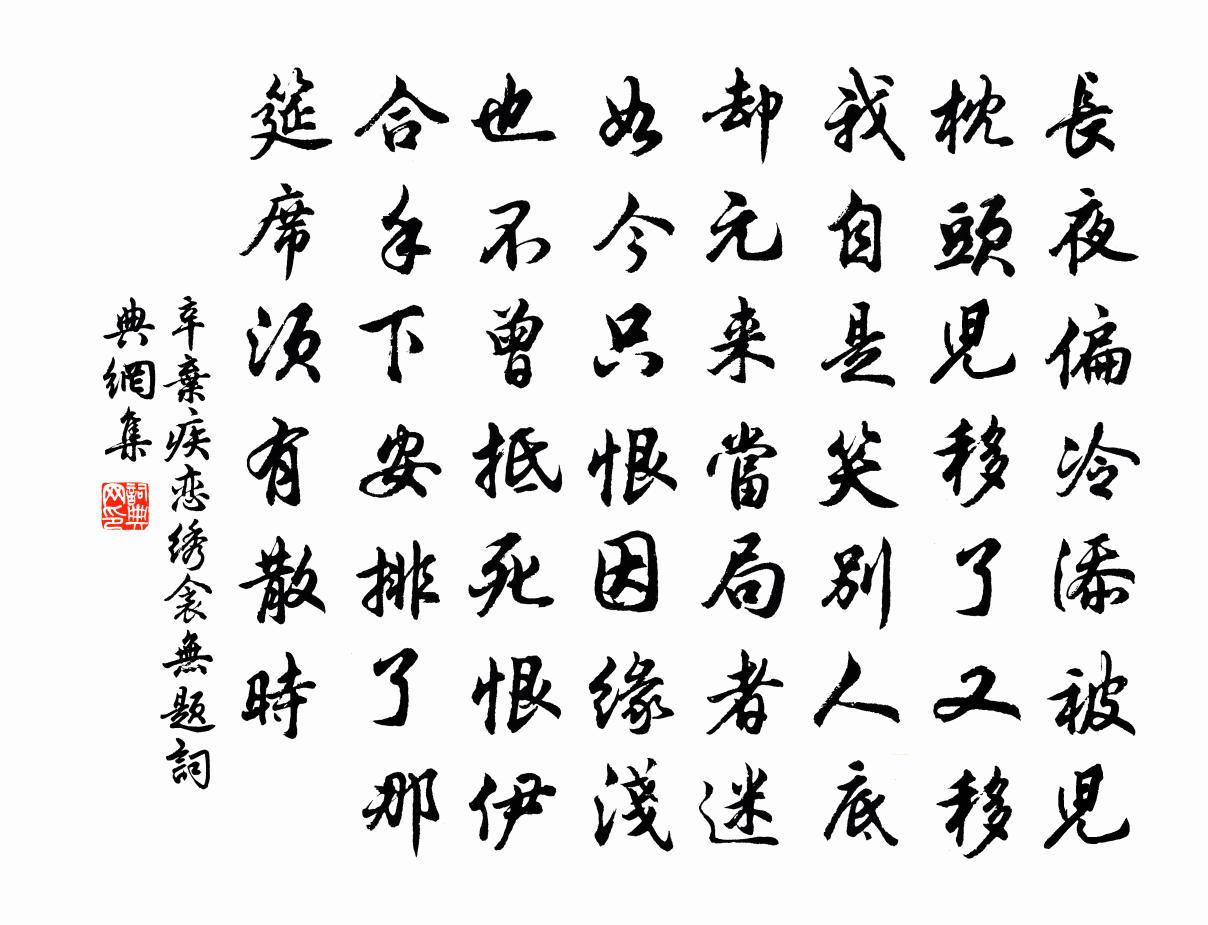 長夜偏冷添被兒
枕頭兒移了又移
我自是笑別人底
却元来當局者迷
如今只恨因緣淺
也不曾抵死恨伊
合手下安排了那
筵席須有散時
辛棄疾恋绣衾無题詞
典網集
詞典网印